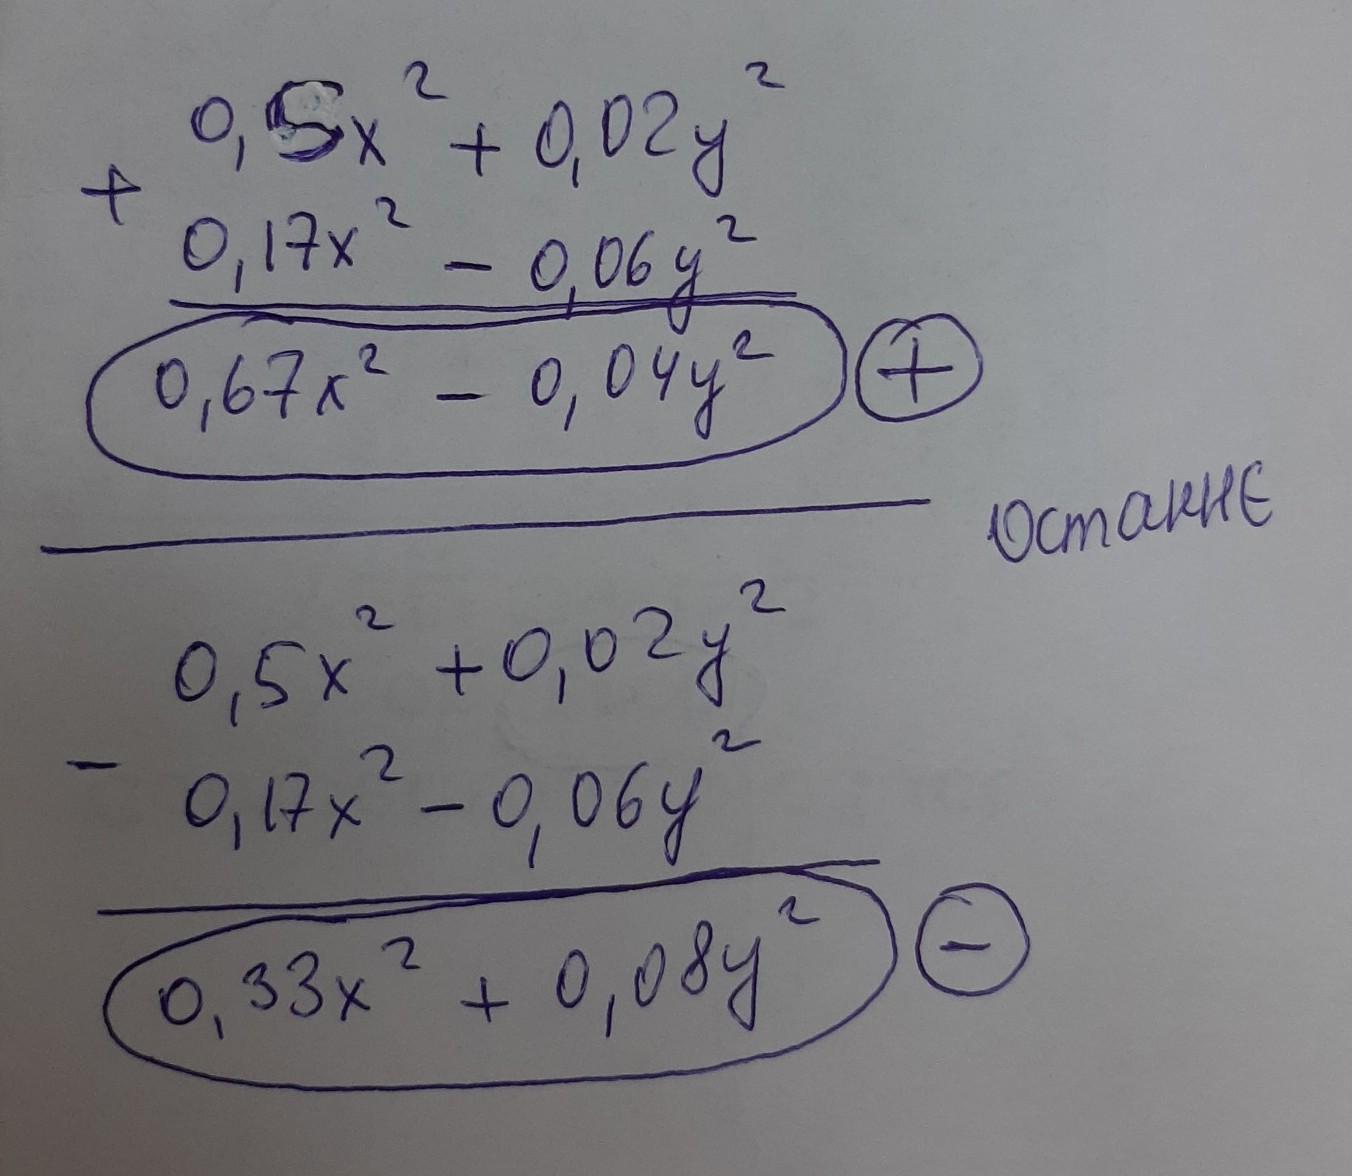 0,5x² + 0,02y²
+
0,17x² - 0,06y²
0,67x² - 0,04y² +
Останнє
0,5x² + 0,02y²
-
0,17x² - 0,06y²
0,33x² + 0,08y² -